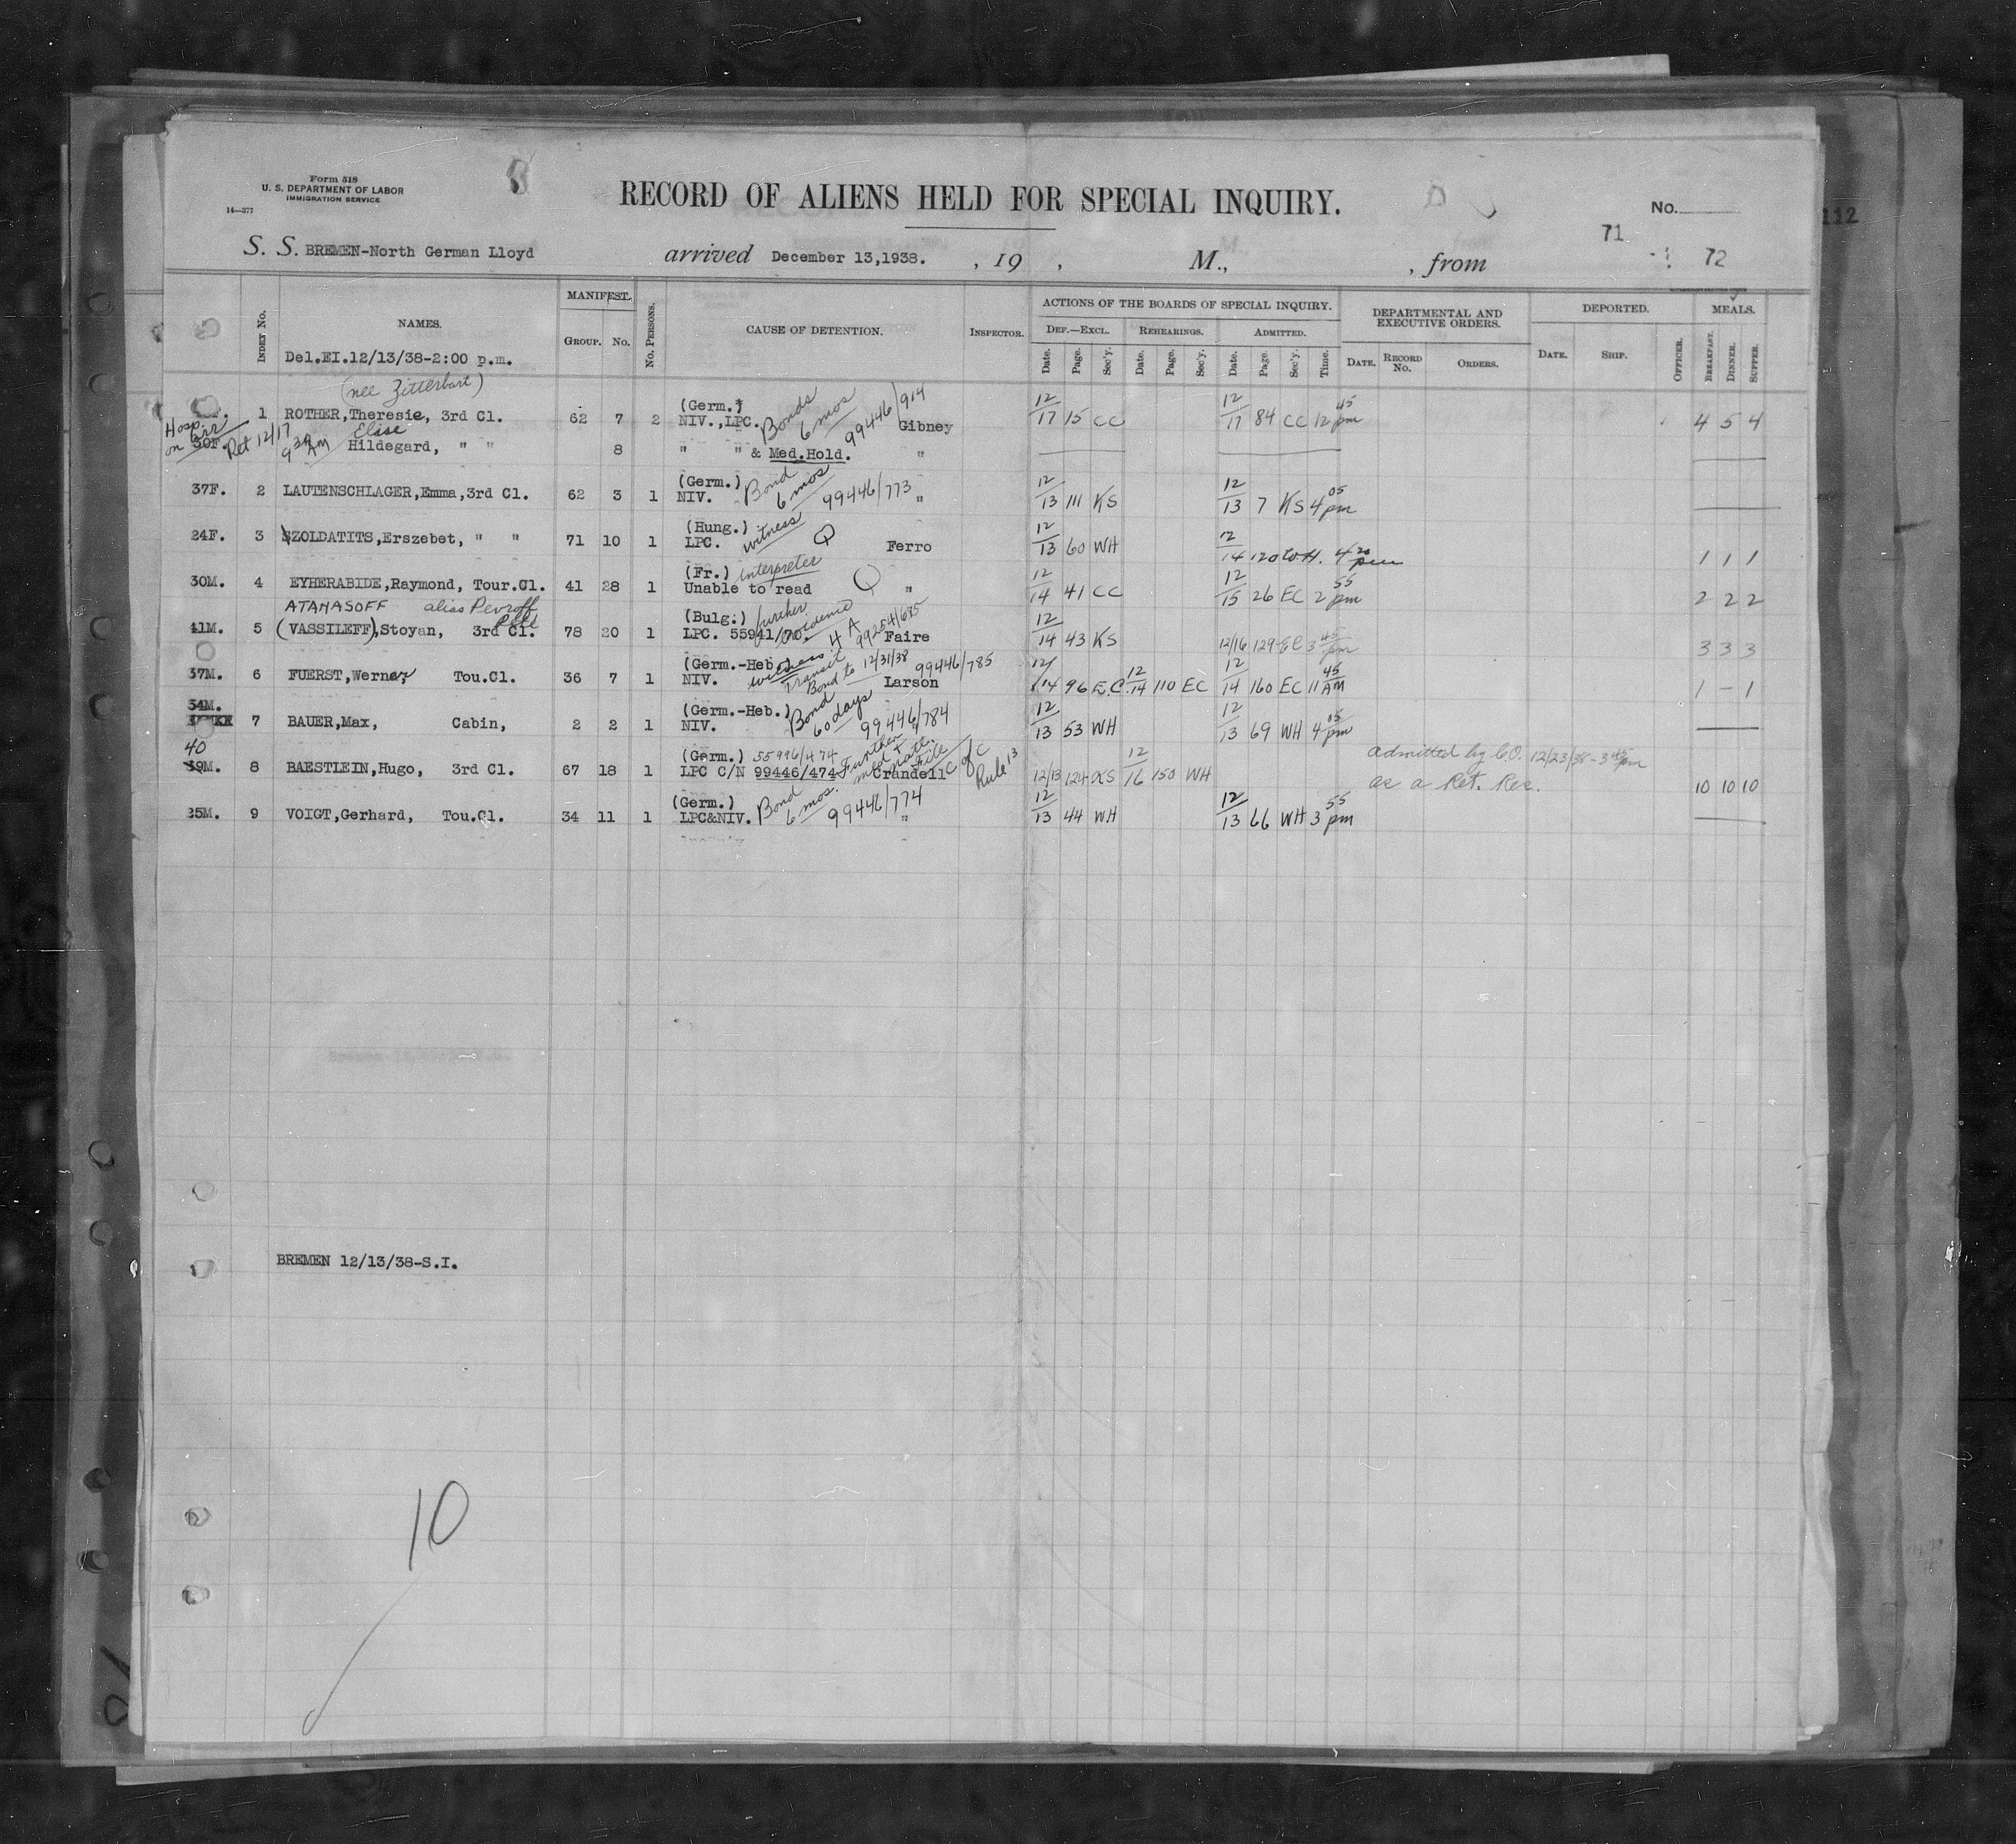 Form 518
U. S. DEPARTMENT OF LABOR
IMMIGRATION SERVICE
14—377
RECORD OF ALIENS HELD FOR SPECIAL INQUIRY.
No.
112
71
72
S. S. BREMEN-North German Lloyd arrived December 13,1938. , 19 , M., , from
INDEX No. NAMES. MANIFEST. GROUP. No. No. PERSONS. CAUSE OF DETENTION. INSPECTOR. ACTIONS OF THE BOARDS OF SPECIAL INQUIRY. DEPARTMENTAL AND EXECUTIVE ORDERS. DEPORTED. MEALS.
DEF.—EXCL. REHEARINGS. ADMITTED.
Date. Page. Sec'y. Date. Page. Sec'y. Date. Page. Sec'y. Time. DATE. RECORD No. ORDERS. DATE. SHIP. OFFICER. BREAKFAST. DINNER. SUPPER.
Del.EI.12/13/38-2:00 p.m.
(nee Zitterbart)
1 ROTHER,Theresie, 3rd Cl. 62 7 2 (Germ.) NIV.,LPC. Bonds 6 mos 99446/914 Gibney 12/17 15 CC 12/17 84 CC 12 45 pm 4 5 4
Hosp on arr Ret 12/17 9 30 AM
30F. Elise Hildegard, " " 8 " " & Med.Hold. "
37F. 2 LAUTENSCHLAGER,Emma,3rd Cl. 62 3 1 (Germ.) NIV. Bond 6 mos 99446/773 " 12/13 111 KS 12/13 7 KS 4 05 pm
24F. 3 SZOLDATITS,Erszebet, " " 71 10 1 (Hung.) LPC. witness Q Ferro 12/13 60 WH 12/14 120 W.H. 4 20 pm 1 1 1
30M. 4 EYHERABIDE,Raymond, Tour.Cl. 41 28 1 (Fr.) Interpreter Unable to read Q " 12/14 41 CC 12/15 26 EC 2 55 pm 2 2 2
ATANASOFF alias Pevroff
41M. 5 (VASSILEFF),Stoyan, 3rd Cl. 78 20 1 (Bulg.) LPC. 55941/ further evidence 4 A 99254/685 Faire 12/14 43 KS 12/16 129 EC 3 45 pm 3 3 3
37M. 6 FUERST,Werner, Tou.Cl. 36 7 1 (Germ.-Heb.) NIV. witness Transit Bond to 12/31/38 99446/785 Larson 12/14 96 E.C 12/14 110 EC 12/14 160 EC 11 45 AM 1 - 1
34M. 7 BAUER,Max, Cabin, 2 2 1 (Germ.-Heb.) NIV. Bond 60 days 99446/784 " 12/13 53 WH 12/13 69 WH 4 15 pm
40
39M. 8 BAESTLEIN,Hugo, 3rd Cl. 67 18 1 (Germ.) 55996/474 LPC C/N 99446/474 Further File Crandell C of C Rule 13 12/13 124 KS 12/16 150 WH admitted by C.O. 12/23/38 - 3 45 pm as a Ret. Res. 10 10 10
25M. 9 VOIGT,Gerhard, Tou.Cl. 34 11 1 (Germ.) LPC&NIV. Bond 6 mos. 99446/774 " 12/13 44 WH 12/13 66 WH 3 55 pm
BREMEN 12/13/38-S.I.
10